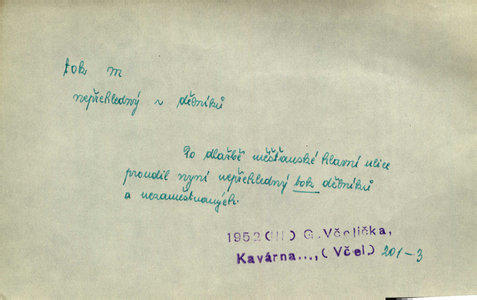 tok m
nepřehledný ~ dělníků
Po dlažbě měšťanské hlavní ulice
proudil nyní nepřehledný tok dělníků
a nezaměstnaných.
1952(III) G.Včelička,
Kavárna...,(Včel) 201-3